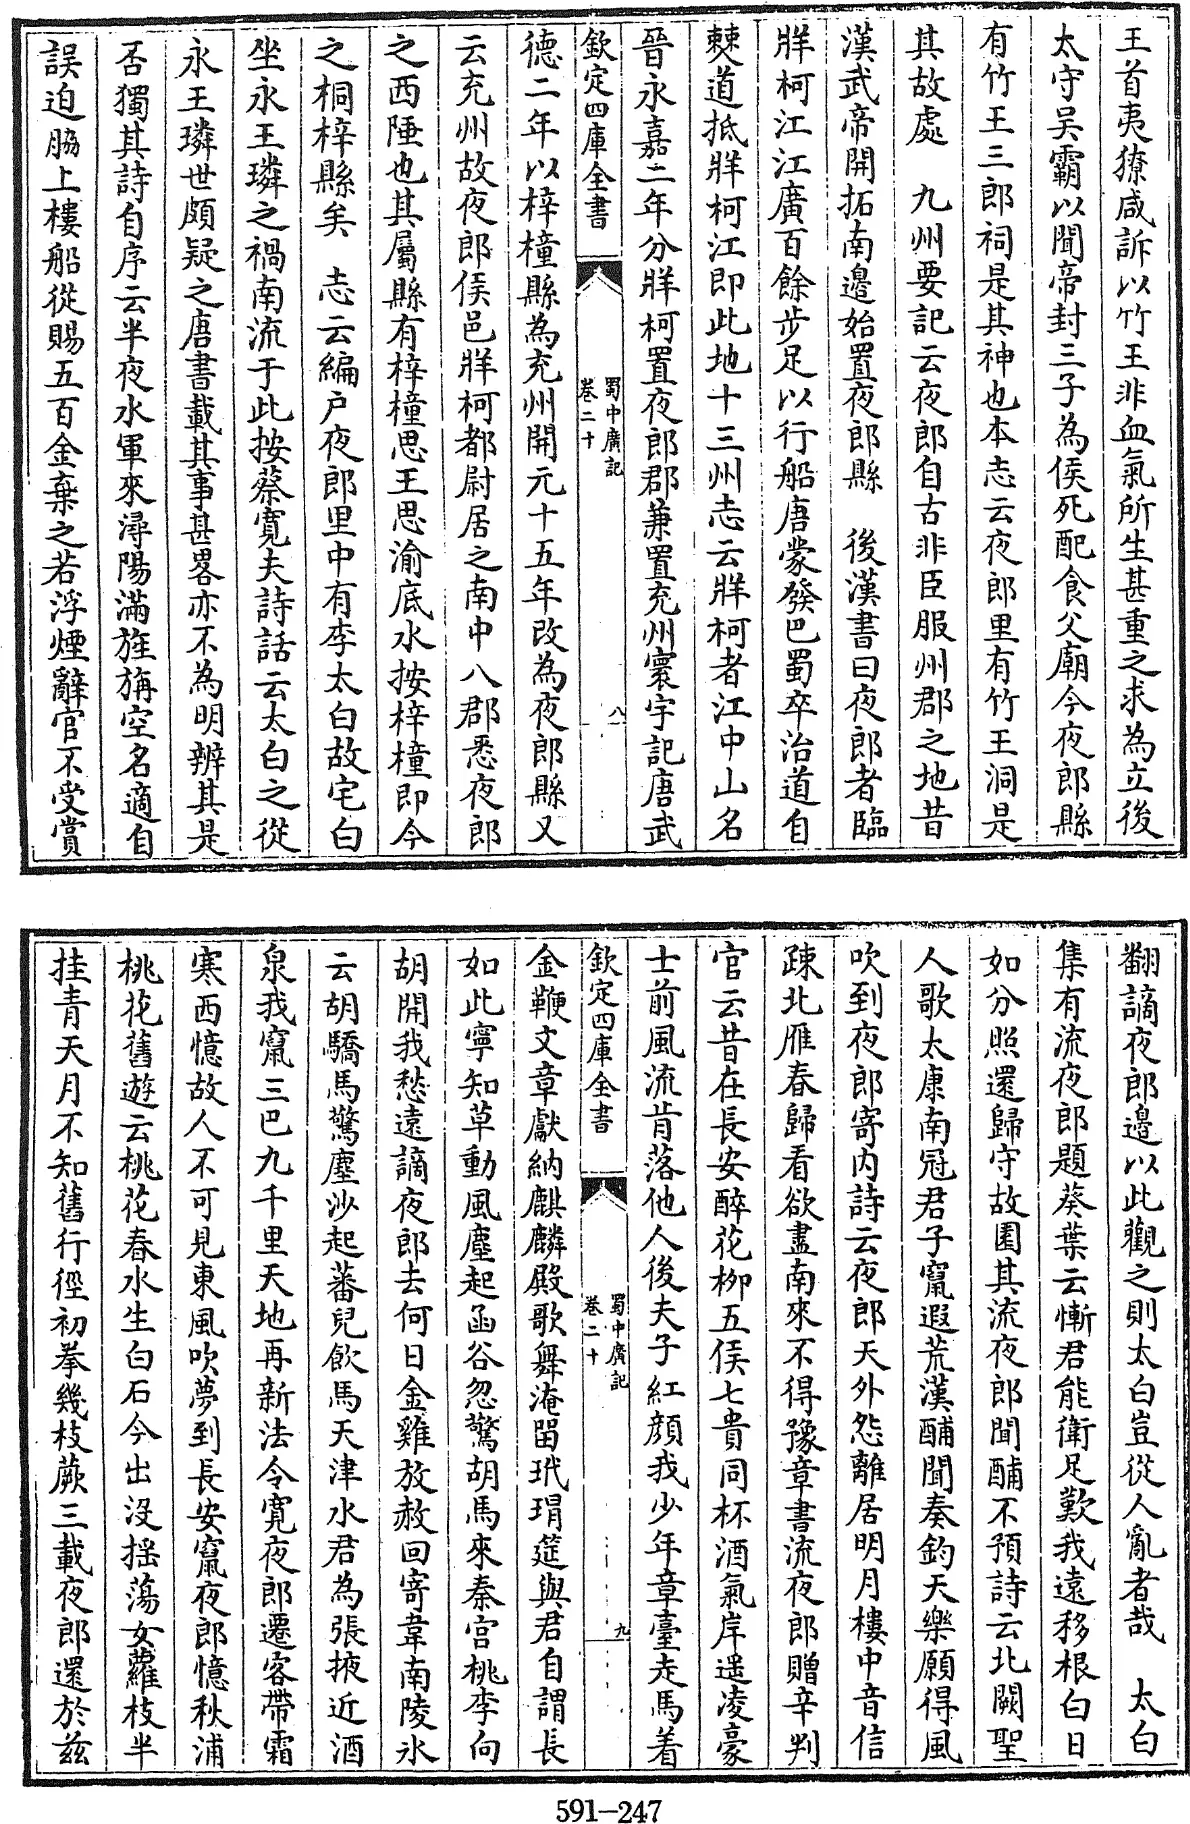 王首夷獠咸訴以竹王非血氣所生甚重之求為立後
太守吴霸以聞帝封三子為侯死配食父廟今夜郎縣
有竹王三郎祠是其神也本志云夜郎里有竹王洞是
其故處　九州要記云夜郎自古非臣服州郡之地昔
漢武帝開拓南邉始置夜郎縣　後漢書曰夜郎者臨
牂柯江江廣百餘步足以行船唐蒙發巴蜀卒治道自
僰道抵牂柯江即此地十三州志云牂柯者江中山名
晉永嘉二年分牂柯置夜郎郡兼置充州寰宇記唐武
欽定四庫全書
蜀中廣記
卷二十
八
德二年以梓橦縣為充州開元十五年改為夜郎縣又
云充州故夜郎侯邑牂柯都尉居之南中八郡悉夜郎
之西陲也其屬縣有梓橦思王思渝底水按梓橦即今
之桐梓縣矣　志云編户夜郎里中有李太白故宅白
坐永王璘之禍南流于此按蔡寛夫詩話云太白之從
永王璘世頗疑之唐書載其事甚畧亦不為明辨其是
否獨其詩自序云半夜水軍來潯陽滿旌旃空名適自
誤迫脇上樓船從賜五百金棄之若浮煙辭官不受賞
翻謫夜郎邉以此觀之則太白豈從人亂者哉　太白
集有流夜郎題葵葉云慚君能衛足歎我遠移根白日
如分照還歸守故園其流夜郎聞酺不預詩云北闕聖
人歌太康南冠君子竄遐荒漢酺聞奏鈞天樂願得風
吹到夜郎寄内詩云夜郎天外怨離居明月樓中音信
疎北雁春歸看欲盡南來不得豫章書流夜郎贈辛判
官云昔在長安醉花柳五侯七貴同杯酒氣岸遥凌豪
士前風流肯落他人後夫子紅顔我少年章臺走馬着
欽定四庫全書
蜀中廣記
卷二十
九
金鞭文章獻納麒麟殿歌舞淹留玳瑁筵與君自謂長
如此寧知草動風塵起函谷忽驚胡馬來秦宫桃李向
胡開我愁遠謫夜郎去何日金雞放赦回寄韋南陵氷
云胡驕馬驚塵沙起蕃兒飲馬天津水君為張掖近酒
泉我竄三巴九千里天地再新法令寛夜郎遷客帶霜
寒西憶故人不可見東風吹夢到長安竄夜郎憶秋浦
桃花舊遊云桃花春水生白石今出没揺蕩女蘿枝半
挂青天月不知舊行徑初拳幾枝蕨三載夜郎還於兹
591-247